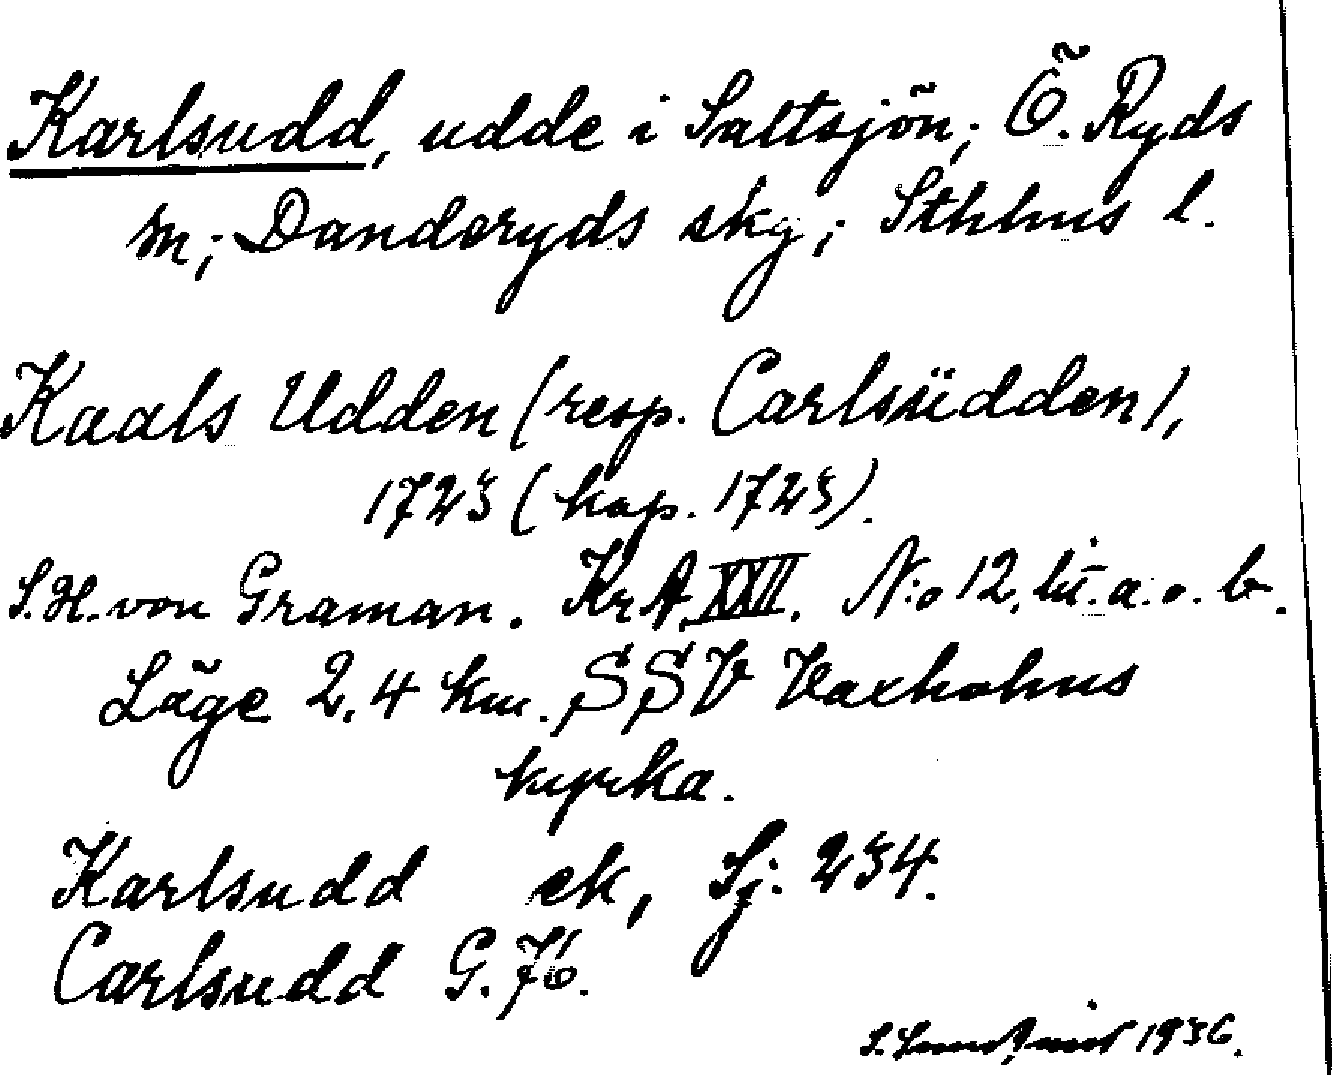 Karlsudd, udde i Saltsjön; Ö. Ryds
sn; Danderyds skg; Sthlms l.
Kaals Udden (resp. Carlsüdden),
1723 (kop. 1723).
S.H. von Graman. KrA. XXII. N:o 12, lit. a. o. b.
Läge 2,4 km. SSV Vaxholms
kyrka.
Karlsudd ek, Sj. 234.
Carlsudd G. 76.
1936.